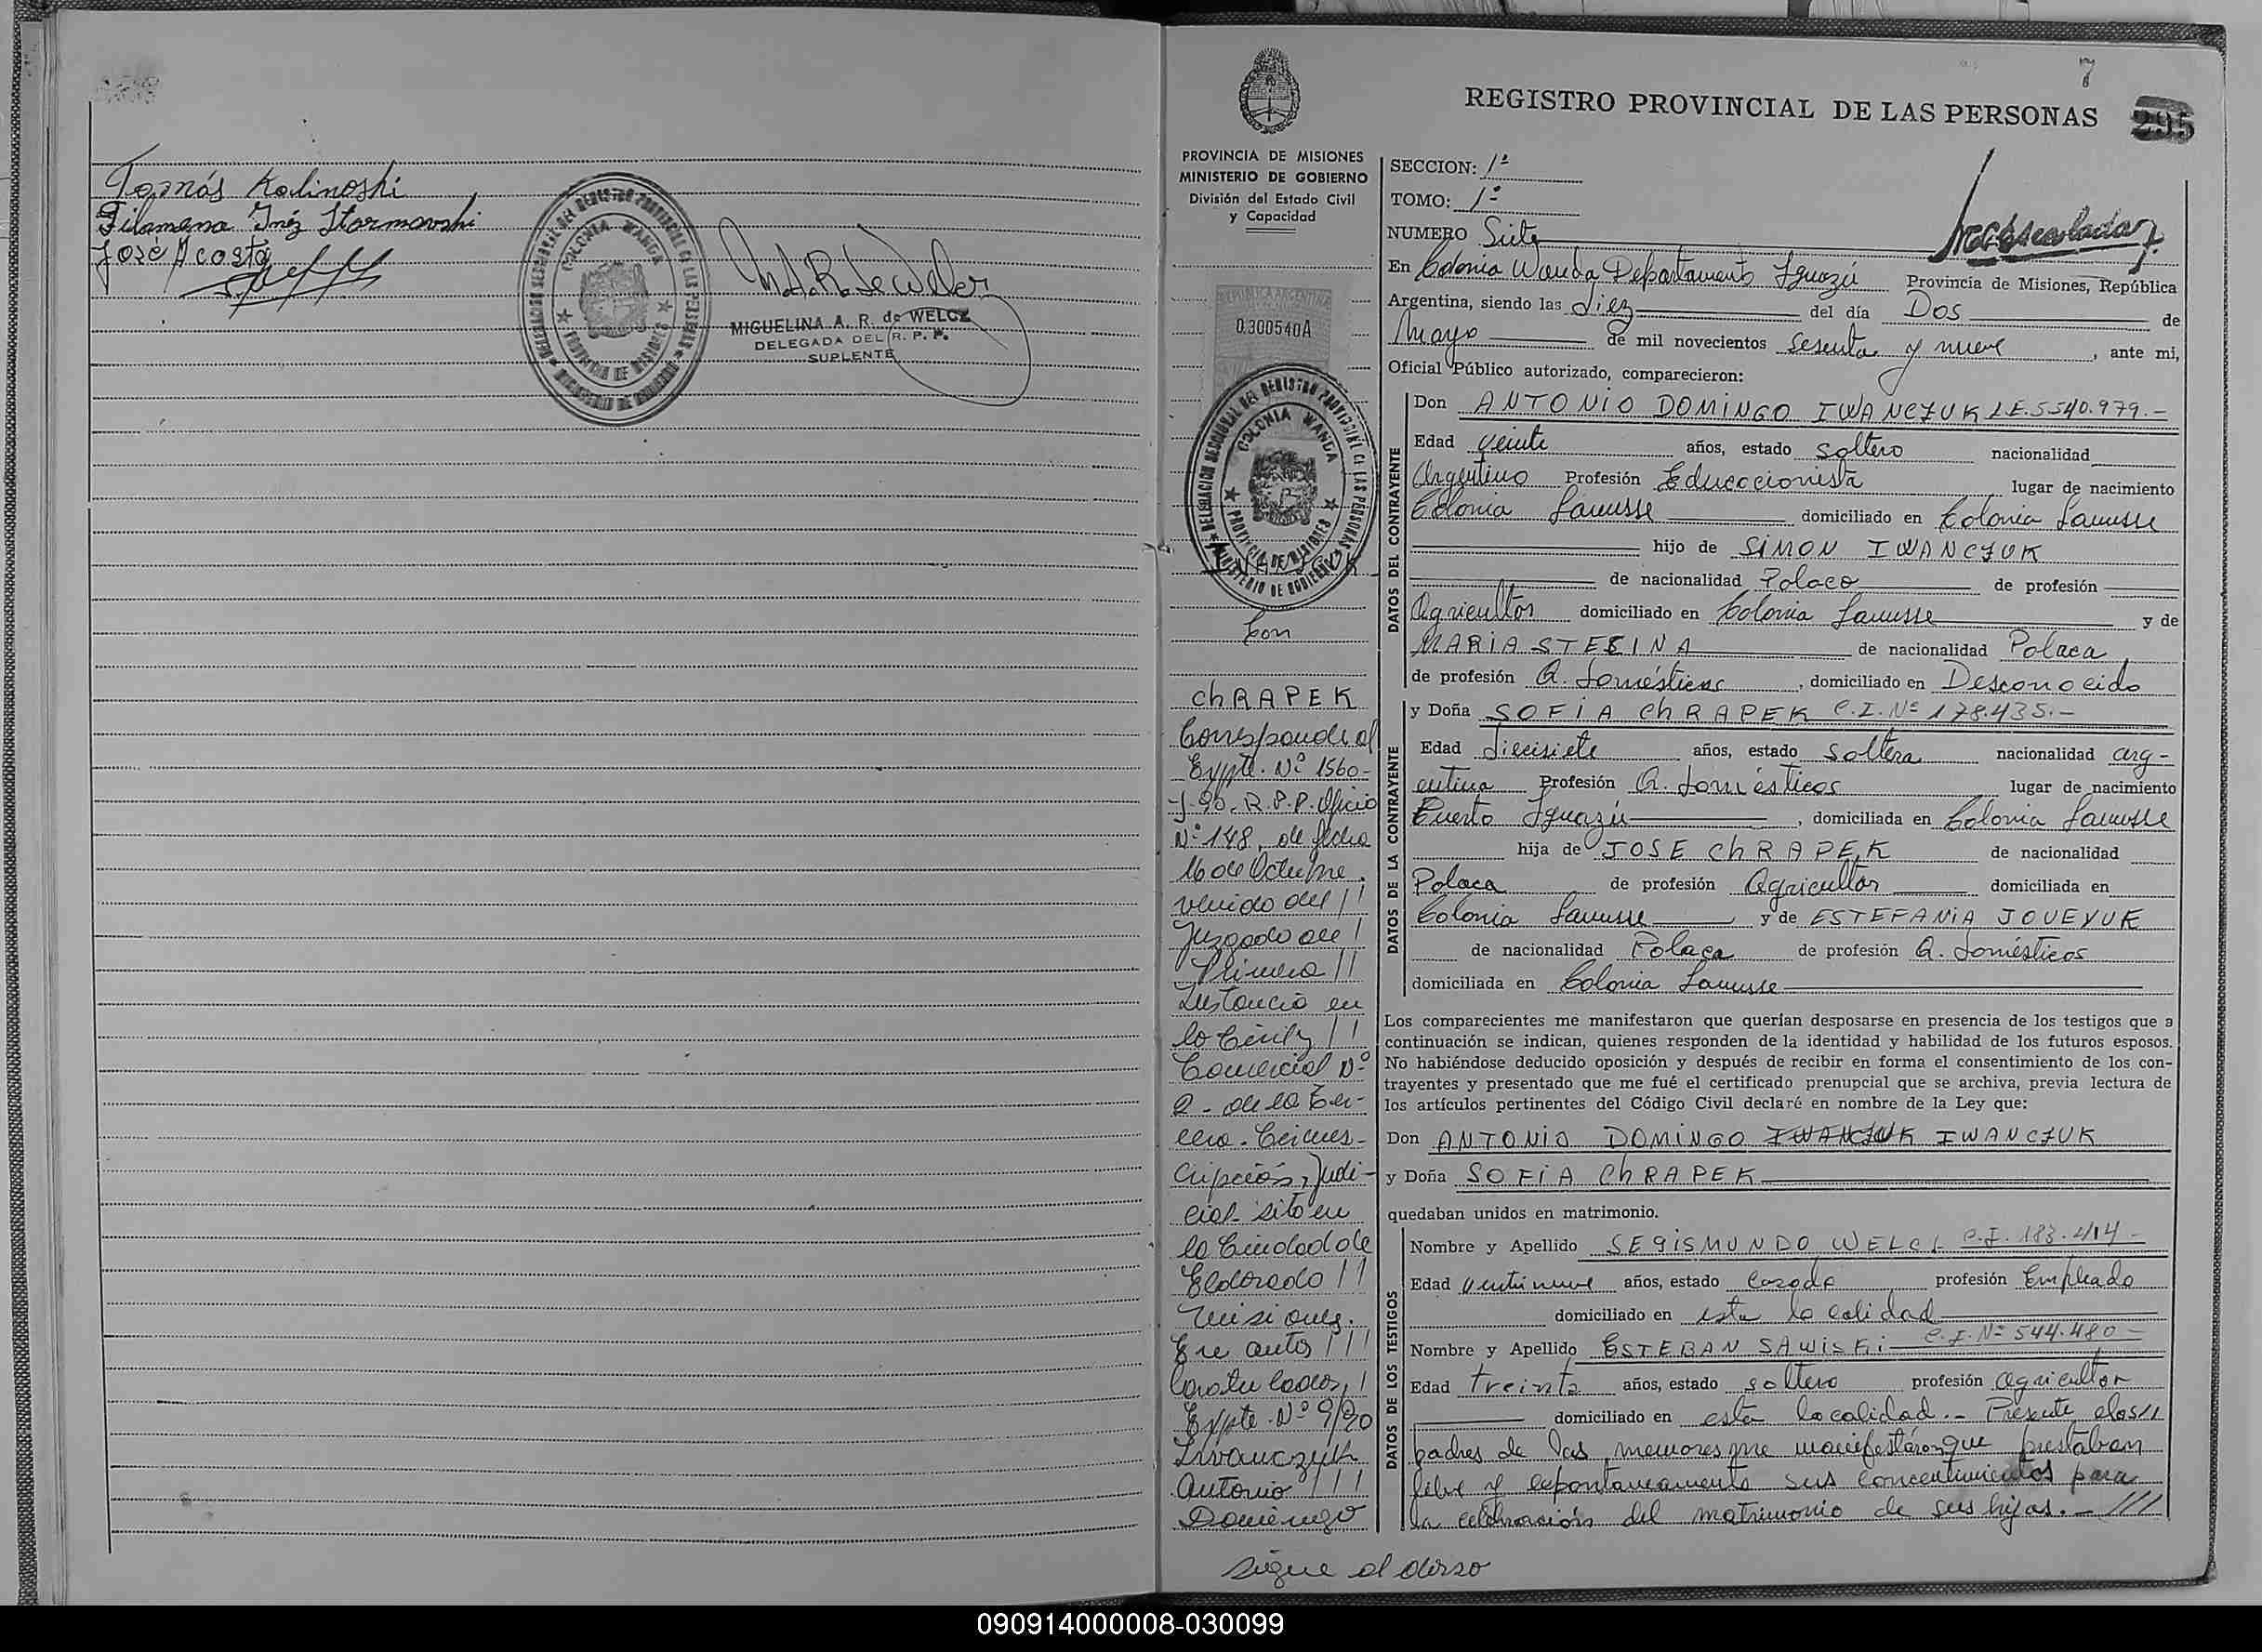 Tomás Kalinoski
Filomena Inéz Starmovski
José Acosta
DELEGACION SECCIONAL DEL REGISTRO PROVINCIAL DE LAS PERSONAS
COLONIA WANDA
PROVINCIA DE MISIONES
MINISTERIO DE GOBIERNO
M.A.R. de Welcz
MIGUELINA A. R. de WELCZ
DELEGADA DEL R. P. P.
SUPLENTE
7
REGISTRO PROVINCIAL DE LAS PERSONAS
295
PROVINCIA DE MISIONES
MINISTERIO DE GOBIERNO
División del Estado Civil
y Capacidad
REPUBLICA ARGENTINA
0.300540A
DELEGACION SECCIONAL DEL REGISTRO PROVINCIAL DE LAS PERSONAS
COLONIA WANDA
PROVINCIA DE MISIONES
MINISTERIO DE GOBIERNO
IWANCZUK
Con
ChRAPEK
Corresponde al
Expte. Nº 1560-
J-90. R.P.P. Oficio
Nº 148, de fecha
16 de Octubre
venido del //
Juzgado de /
Primera //
Instancia en
lo Civil y //
Comercial Nº
2 - de la Ter-
cera. Circuns-
cripción, Judi-
cial- sito en
la Ciudad de
Eldorado //
Misiones.
En autos ///
Caratulados, /
Expte. Nº 9/90
Iwanczuk
Antonio ///
Domingo
sigue al dorso
SECCION: 1ª
TOMO: 1º
NUMERO Siete
En Colonia Wanda Departamento Iguazú Provincia de Misiones, República
Argentina, siendo las diez del día Dos de
Mayo de mil novecientos sesenta y nueve, ante mi,
Oficial Público autorizado, comparecieron:
DATOS DEL CONTRAYENTE
Don ANTONIO DOMINGO IWANCZUK L.E. 5.540.979.-
Edad veinte años, estado soltero nacionalidad
Argentino Profesión Educacionista lugar de nacimiento
Colonia Lanusse domiciliado en Colonia Lanusse
hijo de SIMON IWANCZUK
de nacionalidad Polaco de profesión
Agricultor domiciliado en Colonia Lanusse y de
MARIA STECINA de nacionalidad Polaca
de profesión Q. Domésticos, domiciliado en Desconocido
DATOS DE LA CONTRAYENTE
y Doña SOFIA ChRAPEK C.I. Nº 178.435.-
Edad diecisiete años, estado soltera nacionalidad arg-
entina Profesión Q. domésticos lugar de nacimiento
Puerto Iguazú, domiciliada en Colonia Lanusse
hija de JOSE ChRAPEK de nacionalidad
Polaca de profesión Agricultor domiciliada en
Colonia Lanusse y de ESTEFANIA JOVEYUK
de nacionalidad Polaca de profesión Q. domésticos
domiciliada en Colonia Lanusse
Los comparecientes me manifestaron que querían desposarse en presencia de los testigos que a
continuación se indican, quienes responden de la identidad y habilidad de los futuros esposos.
No habiéndose deducido oposición y después de recibir en forma el consentimiento de los con-
trayentes y presentado que me fué el certificado prenupcial que se archiva, previa lectura de
los artículos pertinentes del Código Civil declaré en nombre de la Ley que:
Don ANTONIO DOMINGO IWANCZUK IWANCZUK
y Doña SOFIA ChRAPEK
quedaban unidos en matrimonio.
DATOS DE LOS TESTIGOS
Nombre y Apellido SEGISMUNDO WELCZ C.I. 183.414-
Edad veintinueve años, estado casado profesión Empleado
domiciliado en esta localidad
Nombre y Apellido ESTEBAN SAWISKI C.I. Nº 544.480-
Edad treinta años, estado soltero profesión agricultor
domiciliado en esta localidad.- Presente elos//
padres de las menores que manifestaron que prestaban
libre y espontaneamente sus concentimientos para
la celebración del matrimonio de sus hijos.- ///